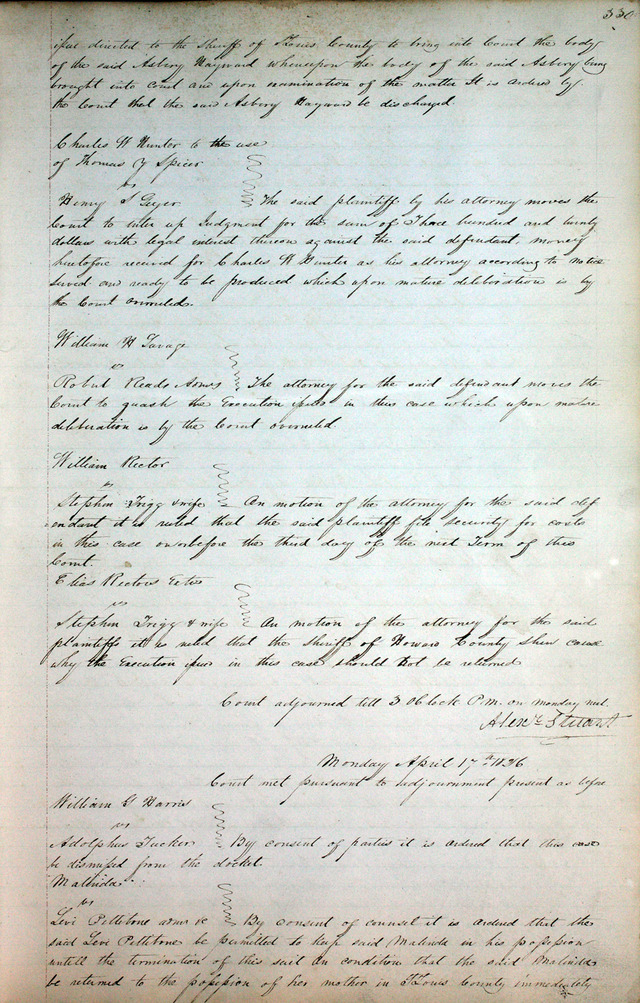 330
ifsue directed to the Sheriff of St Louis County to bring into Court the body
of the said Asbery Hayward whereupon the body of the said Asbery being
brought into court and upon examination of the matter It is ordered by
the Court that the said Asbery Hayward be discharged
Charles W Hunter to the use
of Thomas J Spicer
vs
Henry S Geyer The said plaintiff by his attorney moves the
Court to enter up Judgment for the sum of Three hundred and twenty
dollars with legal interest thereon against the said defendant, money
heretofore received for Charles W Hunter as his attorney according to notice
served and ready to be produced which upon mature deliberation is by
the Court overruled.
William H Savage
vs
Robert Reads Admrs The attorney for the said defendant moves the
Court to quash the Execution ifsued in this case which upon mature
deliberation is by the Court overruled
William Rector
vs
Stephen Trigg & wife On motion of the attorney for the said def
endant it is ruled that the said plaintiff file security for costs
in this case on or before the third day of the next Term of this
Court.
Elias Rectors
vs
Stephen Trigg & wife On motion of the attorney for the said
plaintiffs it is ruled that the Sheriff of Howard County shew cause
why the Execution ifsued in this case should not be returned
Court adjourned till 3 OClock P.m. on monday next.
Alexr Stuart
Monday April 17th 1826
Court met pursuant to adjournment present as before
William G Harris
vs
Adolphus Tucker By consent of parties it is ordered that this case
be dismifsed from the docket.
Malinda
vs
Levi Pettibone admr &c By consent of counsel it is ordered that the
said Levi Pettibone be permitted to keep said Malinda in his pofsefsion
untill the termination of this suit on condition that the said Malinda
be returned to the pofsefsion of her mother in St Louis County immediately